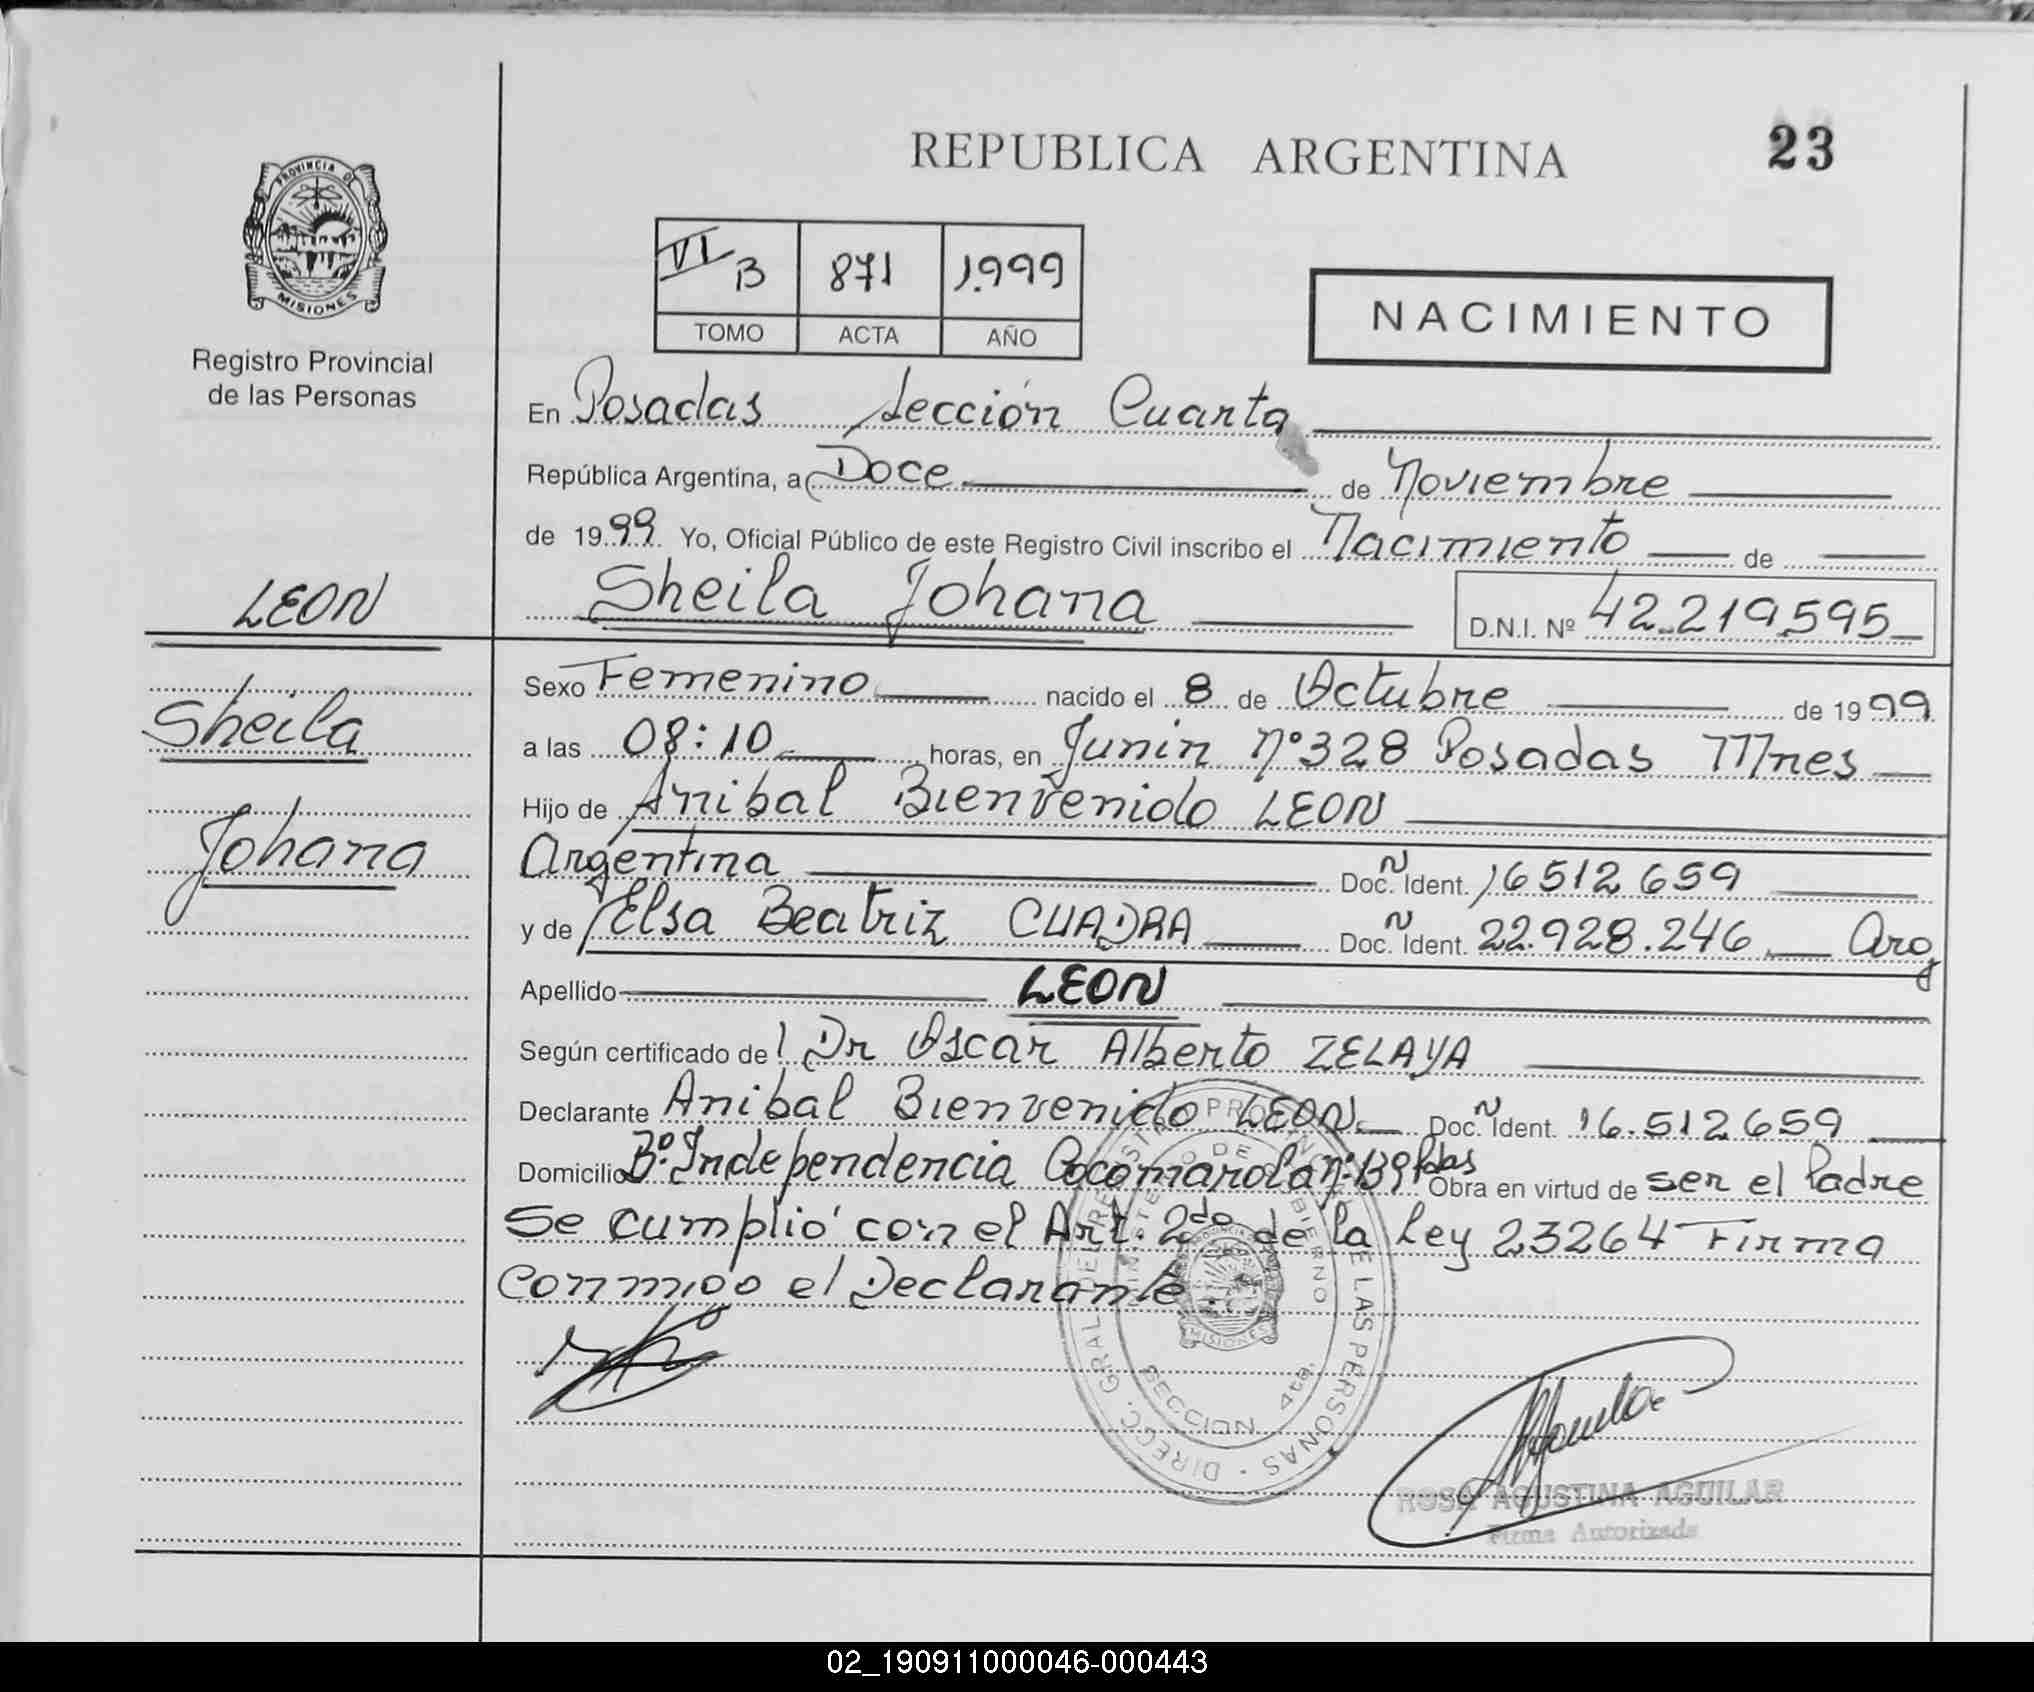 REPUBLICA ARGENTINA
23
PROVINCIA DE
MISIONES
Registro Provincial
de las Personas
VI B 871 1.999
TOMO ACTA AÑO
NACIMIENTO
En Posadas Sección Cuarta
República Argentina, a Doce de Noviembre
de 1999 Yo, Oficial Público de este Registro Civil inscribo el Nacimiento de
Sheila Johana D.N.I. Nº 42.219.595
LEON
Sheila
Johana
Sexo Femenino nacido el 8 de Octubre de 1999
a las 08:10 horas, en Junin Nº 328 Posadas Mnes
Hijo de Anibal Bienvenido LEON
Argentina Doc. Ñ Ident. 16512659
y de Elsa Beatriz CUADRA Doc. Ñ Ident. 22.928.246 Arg
Apellido LEON
Según certificado del Dr Oscar Alberto ZELAYA
Declarante Anibal Bienvenido LEON Doc. Ñ Ident. 16.512659
Domicilio Bº Independencia Cocomarola nº 139 Pdas Obra en virtud de ser el Padre
Se cumplió con el Art. 2do de la Ley 23264 Firma
conmigo el Declarante.
DIRECC. GRAL. DEL REGISTRO PROVINCIAL DE LAS PERSONAS
MINISTERIO DE GOBIERNO
MISIONES
SECCION 4ta.
ROSA AGUSTINA AGUILAR
Firma Autorizada
02_190911000046-000443